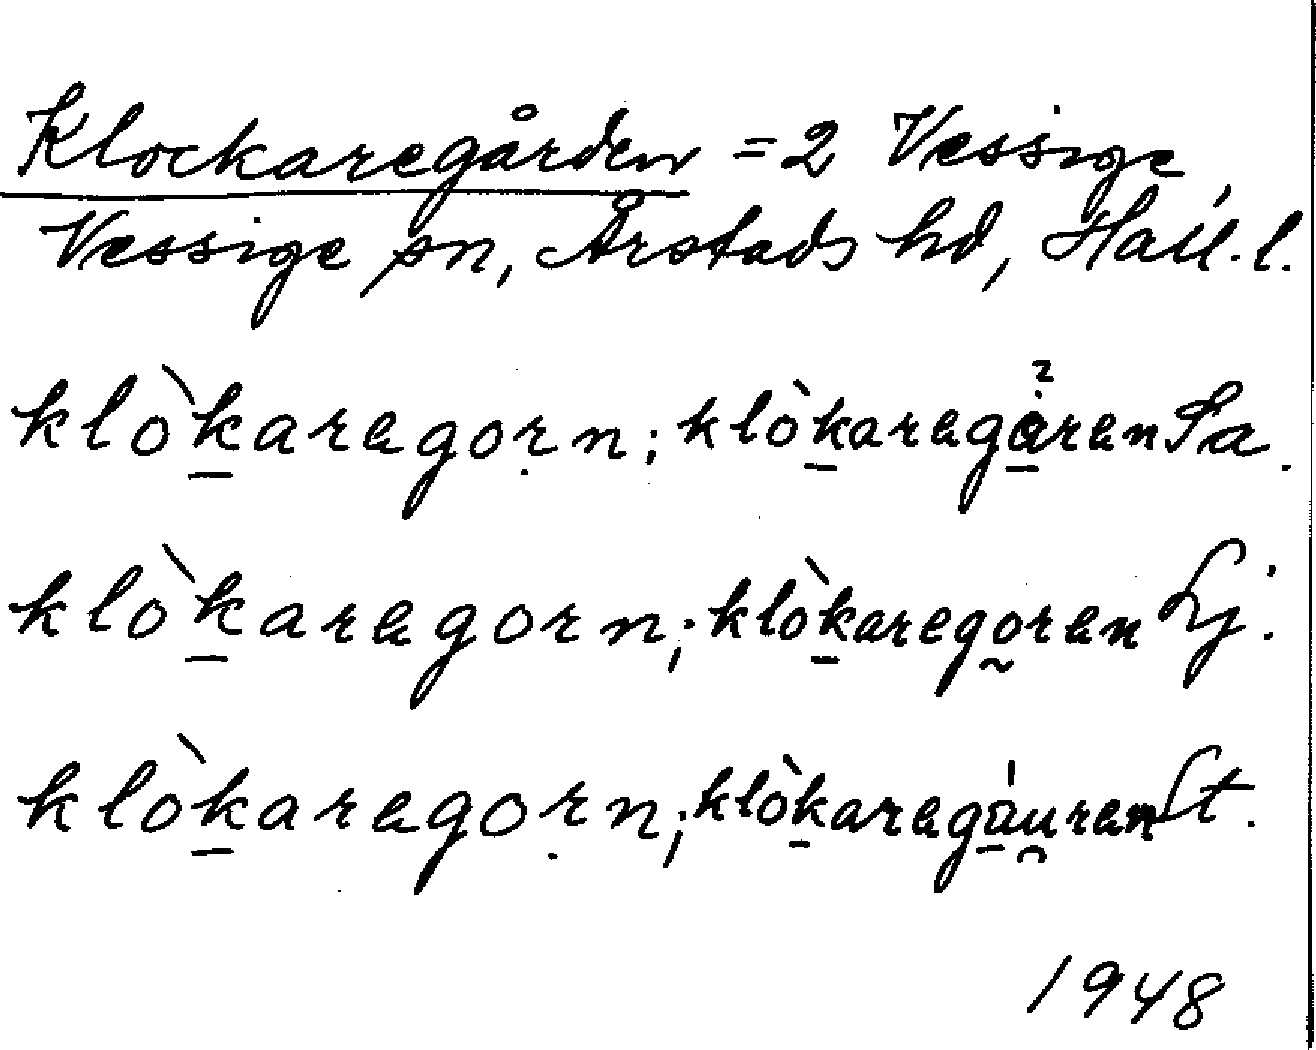 Klockaregården = 2 Vessige,
Vessige sn, Årstads hd, Hall. l.
klò̱karegoṛn; klò̱karegåren Sa.
klò̱karegorn; klò̱karego̰ren Lj.
klò̱karegoṛn; klò̱karegáu̯ren St.
1948